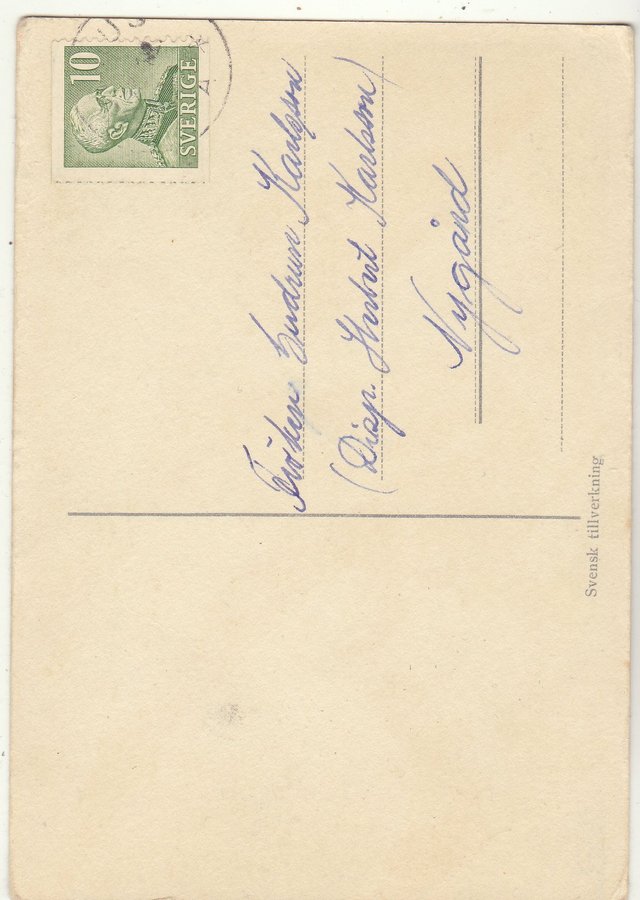 10
SVERIGE
Fröken Gudrun Karlsson
(Disp. Herbert Karlsson)
Nygård
Svensk tillverkning